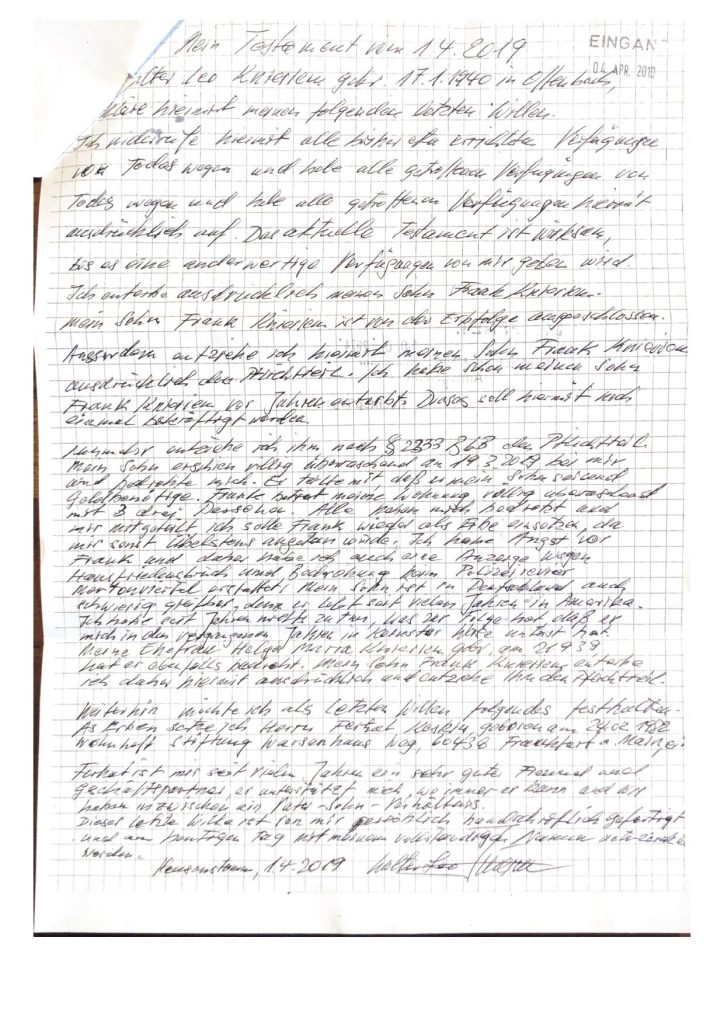 Mein Testament vom 1.4.2019
EINGAN
04. APR. 2010
alter Leo Knieriem gebr. 17.1.1940 in Offenbach,
kläre hiermit meinen folgenden letzten Willen.
Ich widerrufe hiermit alle bisher errichten Verfügungen
von Todes wegen und habe alle getroffenen Verfügungen von
Todes wegen und habe alle getroffenen Verfügungen hiermit
ausdrücklich auf. Das aktuelle Testament ist wirksam,
bis es eine anderwertige Verfügungen von mir geben wird.
Ich enterbe ausdrücklich meinen Sohn Frank Knieriem.
Mein Sohn Frank Knieriem ist von der Erpfolge ausgeschlossen.
Ausserdem entziehe ich hiermit meinen Sohn Frank Knieriem
ausdrücklich den Pflichtteil. Ich habe schon meinen Sohn
Frank Knieriem vor Jahren enterbt. Dieses soll hiermit noch
einmal bekräftigt werden.
Nunmehr entziehe ich ihm nach § 2333 BGB den Pflichtteil.
Mein Sohn erschien völlig überraschend am 19.3.2019 bei mir
und bedrohte mich. Er teilte mit daß er mein Sohn sei und
Geld benötige. Frank betrat meine Wohnung völlig überraschend
mit 3 drei Personen. Alle haben mich bedroht und
mir mitgeteilt ich solle Frank wieder als Erbe einsetzen, da
mir sonst Übelstens angetan würde. Ich habe Angst vor
Frank und daher habe ich auch eine Anzeige wegen
Hausfriedensbruch und Bedrohung beim Polizeirevier
erstattet. Mein Sohn ist in Deutschland auch
schwierig greifbar, denn er lebt seit vielen Jahren in Amerika.
Ich habe seit Jahren nichts zu tun, was zur Folge hat daß er
mich in den vergangenen Jahren in keinster Weise hat.
Meine Ehefrau Helga Maria Knieriem gebr. am 2 1939
hat er ebenfalls bedroht. Mein Sohn Frank Knieriem enterbe
ich daher hiermit ausdrücklich und entziehe Ihm den Pflichtteil.
Weiterhin möchte ich als letzten Willen folgendes festhalten.
Als Erben setze ich Herrn Ferhat Keskin, geboren am 24.02 1982
wohnhaft Stiftung Waisenhaus Weg, 60438 Frankfurt a. Main, ein
Ferhat ist mir seit vielen Jahren ein sehr guter Freund und
Geschäftspartner, er unterstützt mich, wo immer er kann und wir
haben inzwischen ein Vater-Sohn-Verhältnis.
Dieser letzte Wille ist von mir persönlich handschriftlich gefertigt
und am heutigen Tag mit meinem vollständigen Namen
worden.
1.4.2019 Walter Leo